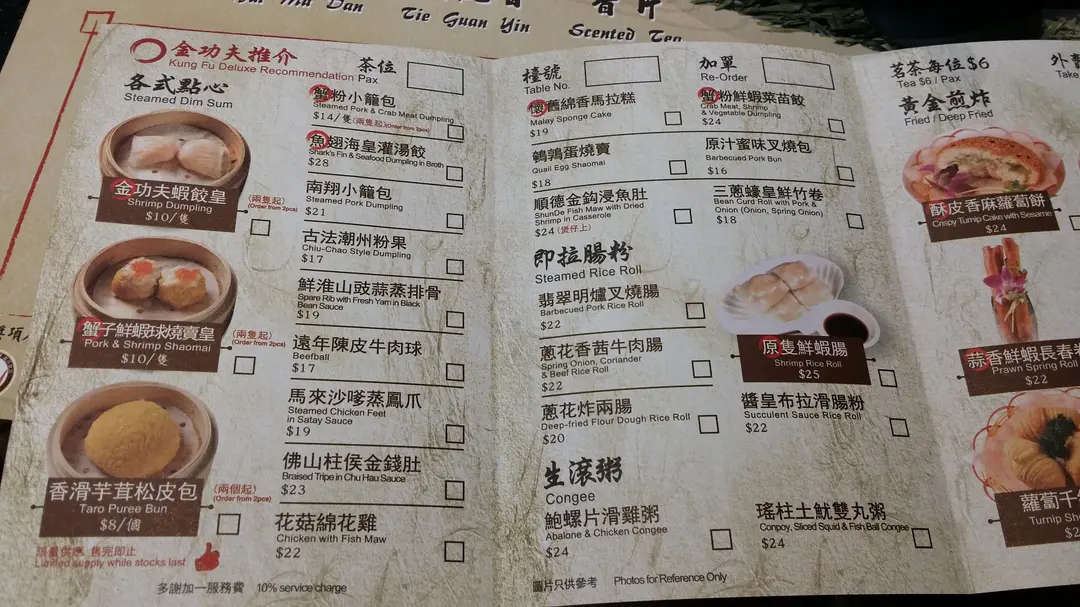 Tie Guan Yin
Scented Tea
金功夫推介
Kung Fu Deluxe Recommendation
茶位
Pax
各式點心
Steamed Dim Sum
金功夫蝦餃皇
Shrimp Dumpling
$10/隻
(兩隻起)
(Order from 2pcs)
蟹子鮮蝦球燒賣皇
Pork & Shrimp Shaomai
$10/隻
(兩隻起)
(Order from 2pcs)
香滑芋茸松皮包
Taro Puree Bun
$8/個
(兩個起)
(Order from 2pcs)
限量供應 售完即止
Limited supply while stocks last
多謝加一服務費 10% service charge
蟹粉小籠包
Steamed Pork & Crab Meat Dumpling
$14/隻(兩隻起)(Order from 2pcs)
魚翅海皇灌湯餃
Shark's Fin & Seafood Dumpling in Broth
$28
南翔小籠包
Steamed Pork Dumpling
$21
古法潮州粉果
Chiu-Chao Style Dumpling
$17
鮮淮山豉蒜蒸排骨
Spare Rib with Fresh Yam in Black
Bean Sauce
$19
遠年陳皮牛肉球
Beefball
$17
馬來沙嗲蒸鳳爪
Steamed Chicken Feet
in Satay Sauce
$19
佛山柱侯金錢肚
Braised Tripe in Chu Hau Sauce
$23
花菇綿花雞
Chicken with Fish Maw
$22
檯號
Table No.
懷舊綿香馬拉糕
Malay Sponge Cake
$19
鵪鶉蛋燒賣
Quail Egg Shaomai
$18
順德金鈎浸魚肚
ShunDe Fish Maw with Dried
Shrimp in Casserole
$24 (煲仔上)
即拉腸粉
Steamed Rice Roll
翡翠明爐叉燒腸
Barbecued Pork Rice Roll
$22
蔥花香茜牛肉腸
Spring Onion, Coriander
& Beef Rice Roll
$22
蔥花炸兩腸
Deep-fried Flour Dough Rice Roll
$20
生滾粥
Congee
鮑螺片滑雞粥
Abalone & Chicken Congee
$24
圖片只供參考 Photos for Reference Only
加單
Re-Order
蟹粉鮮蝦菜苗餃
Crab Meat, Shrimp
& Vegetable Dumpling
$24
原汁蜜味叉燒包
Barbecued Pork Bun
$16
三蔥蠔皇鮮竹卷
Bean Curd Roll with Pork &
Onion (Onion, Spring Onion)
$18
原隻鮮蝦腸
Shrimp Rice Roll
$25
醬皇布拉滑腸粉
Succulent Sauce Rice Roll
$22
瑤柱土魷雙丸粥
Conpoy, Sliced Squid & Fish Ball Congee
$24
茗茶每位$6
Tea $6 / Pax
Take
黃金煎炸
Fried / Deep Fried
酥皮香麻蘿蔔餅
Crispy Turnip Cake with Sesame
$24
蒜香鮮蝦長春
Prawn Spring Roll
$22
蘿蔔千
Turnip
$